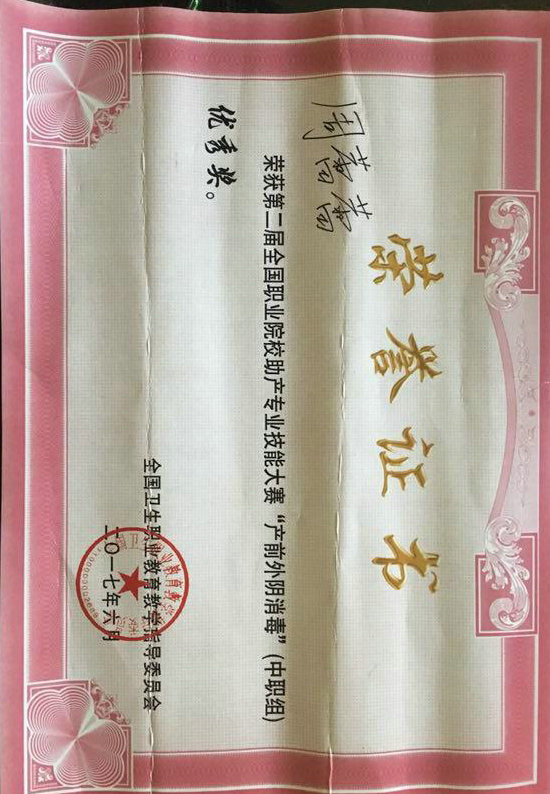 荣誉证书
周蕾蕾
荣获第二届全国职业院校助产专业技能大赛“产前外阴消毒”(中职组)
优秀奖。
全国卫生职业教育教学指导委员会
二〇一七年六月